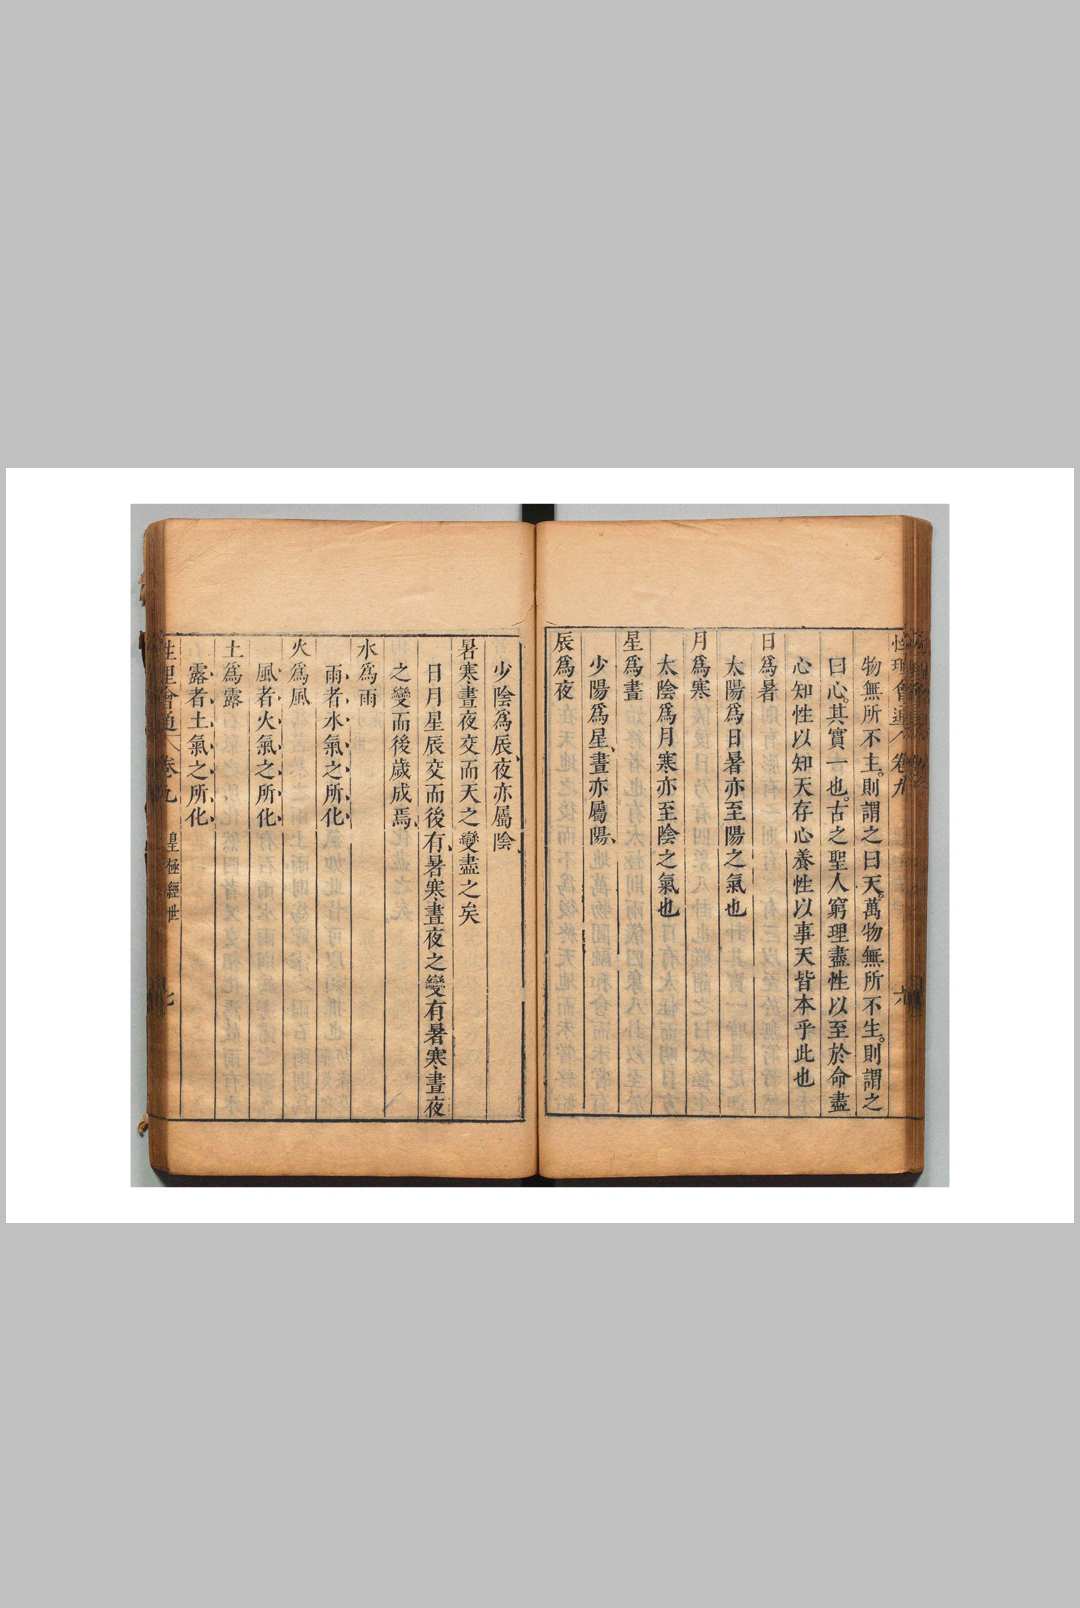 性理會通 卷九 六
物無所不主。則謂之曰天。萬物無所不生。則謂之
曰心。其實一也。古之聖人窮理盡性以至於命盡
心知性以知天存心養性以事天皆本乎此也
日爲暑
太陽爲日暑亦至陽之氣也
月爲寒
太陰爲月寒亦至陰之氣也
星爲晝
少陽爲星、晝亦屬陽、
辰爲夜
少陰爲辰、夜亦屬陰、
暑寒晝夜交而天之變盡之矣
日月星辰交而後有暑寒晝夜之變有暑寒晝夜
之變而後歲成焉、
水爲雨
雨者水氣之所化
火爲風
風者火氣之所化
土爲露
露者土氣之所化
性理會通 卷九 皇極經世 七